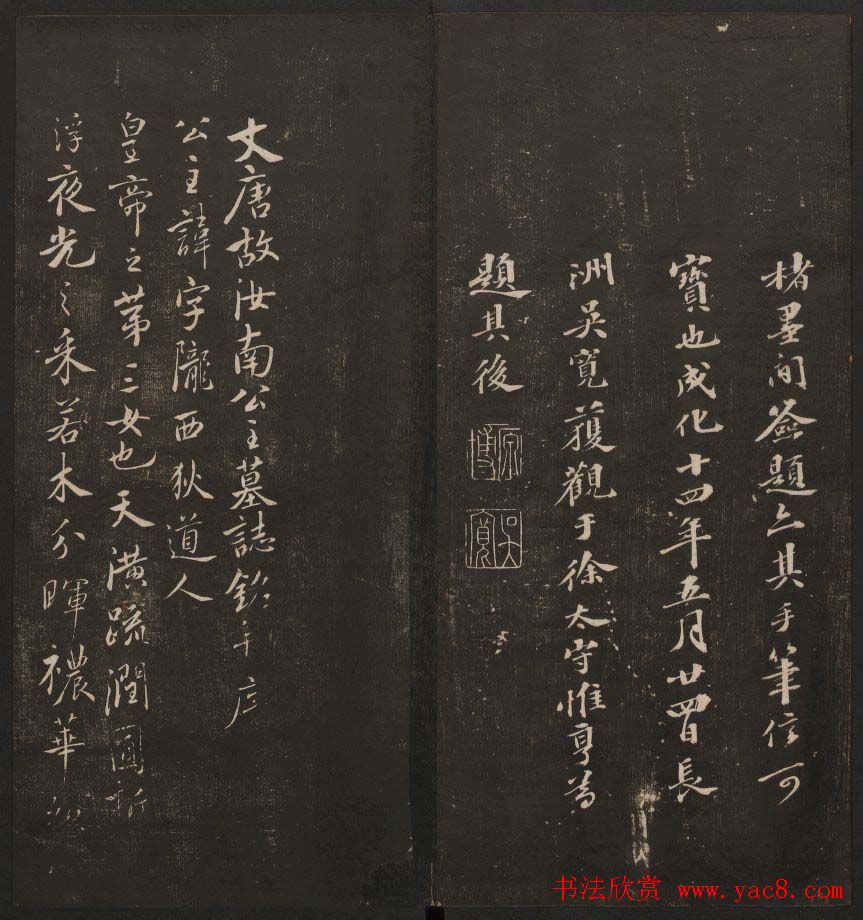 楮墨間簽題亦其手筆信可
寶也成化十四年五月廿四日長
洲吳寬獲觀于徐太守惟亨為
題其後
原博
吳寬
大唐故汝南公主墓誌銘并序
公主諱字隴西狄道人
皇帝之苐三女也天潢疏潤圓折
浮夜光之采若木分暉襛華
书法欣赏 www.yac8.com